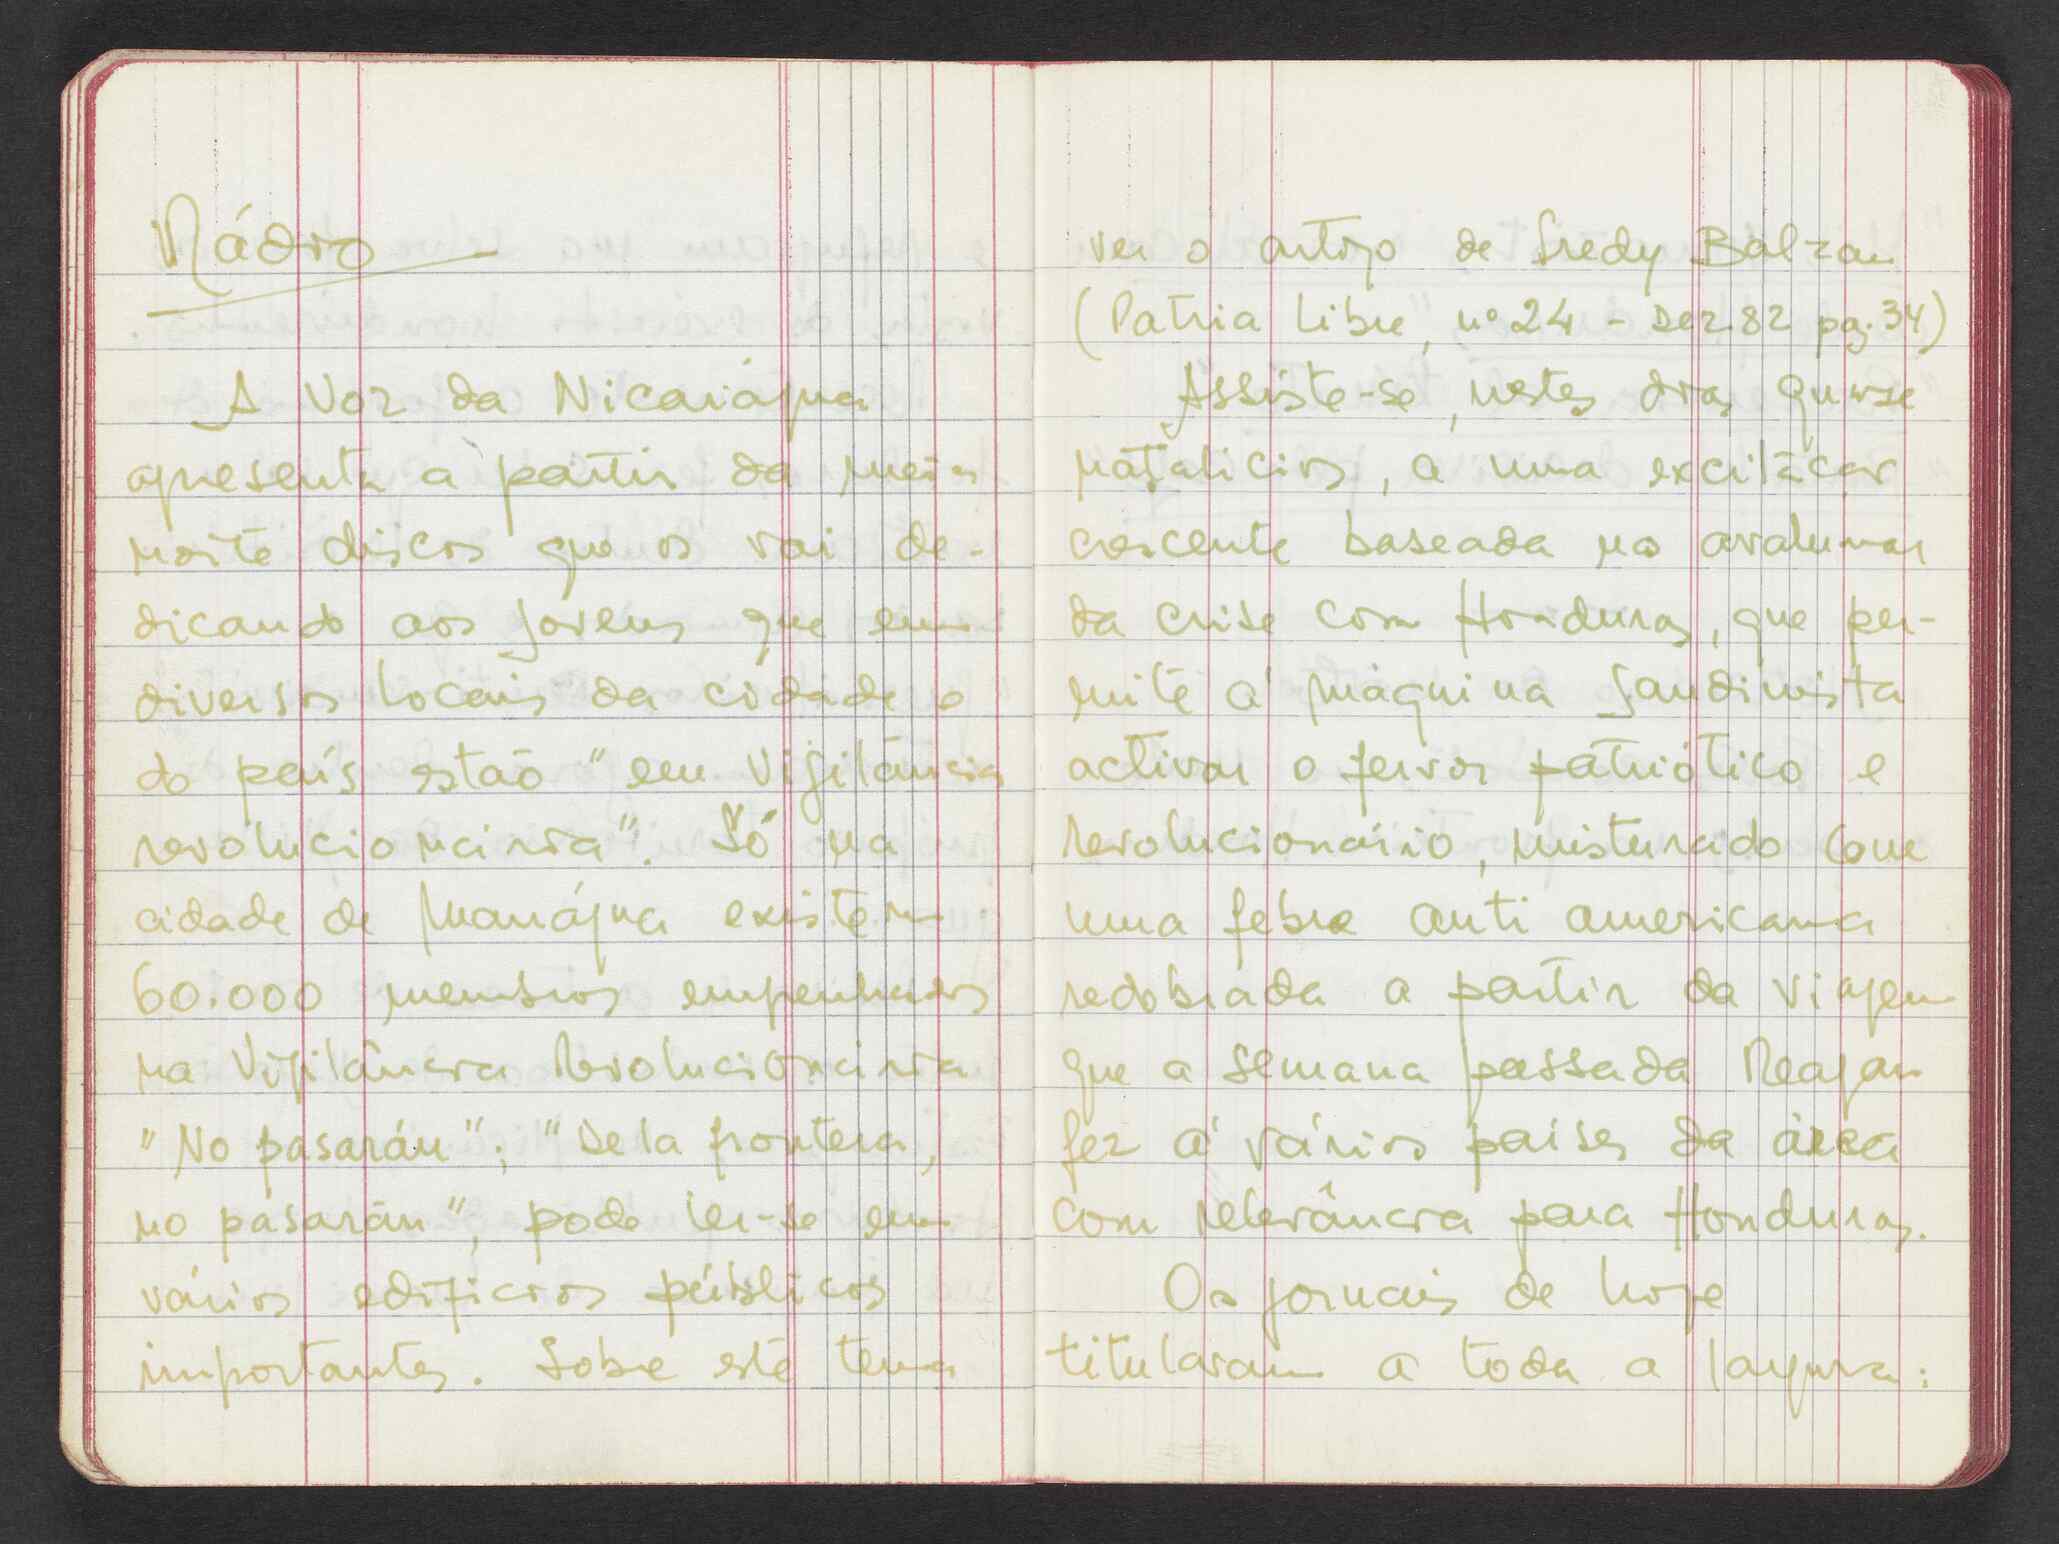 Rádio
A Voz da Nicarágua
apresenta a partir da meia
noite discos que os vai de-
dicando aos jovens que em
diversos locais da cidade e
do país estão "em Vigilância
revolucionária". Só na
cidade de Manágua existem
60.000 membros empenhados
na Vigilância Revolucionária
"No pasarán"; "De la frontera,
no pasarán", pode ler-se em
vários edifícios públicos
importantes. Sobre este tema
ver o artigo de Fredy Balzan
(Patria Libre, nº 24 - Dez 82 pg. 34)
Assiste-se, nestes dias quase
natalícios, a uma excitação
crescente baseada no avolumar
da crise com Honduras, que per-
mite á máquina Sandinista
activar o fervor patriótico e
revolucionário, misturado com
uma febre anti americana
redobrada a partir da viagem
que a semana passada Reagan
fez a vários países da área
com relevância para Honduras.
Os jornais de hoje
titulavam a toda a largura: